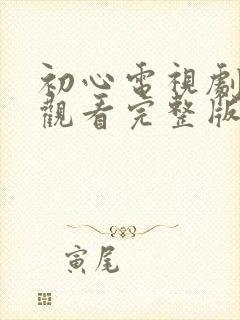 初心電視劇
觀看完整版
寅尾